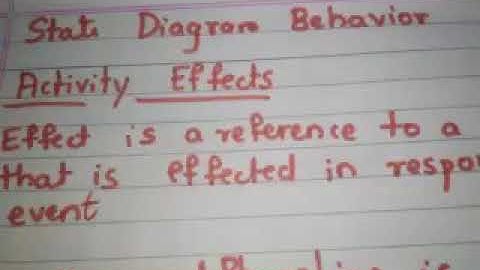 State Diagram Behavior
Activity Effects
Effect is a reference to a
that is effected in respon
event
is